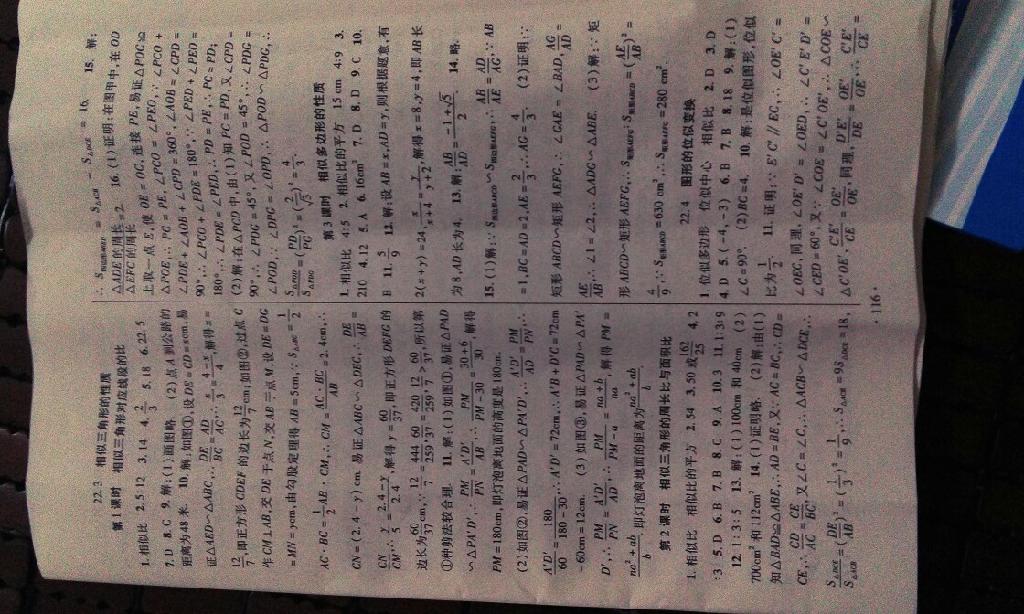 22.3 相似三角形的性质
第1课时 相似三角形对应线段的比
1.相似比 2.5:12 3.14 4. 2/3 5.18 6.22.5
7.D 8.C 9.解:(1)画图略 (2)点A到公路的
距离为48米. 10.解:如图①,设DE=CD=xcm,易
证△AED∽△ABC,∴DE/BC=AD/AC,∴x/3=(4-x)/4,解得x=
12/7,即正方形CDEF的边长为12/7cm;如图②,过点C
作CH⊥AB,交DE于点N,交AB于点M.设DE=DG
=MN=ycm,由勾股定理得AB=5cm,∵S△ABC=1/2
AC·BC=1/2AB·CM,∴CM=AC·BC/AB=2.4cm,∴
CN=(2.4-y)cm.易证△ABC∽△DEC,∴DE/AB=
CN/CM,∴y/5=(2.4-y)/2.4,解得y=60/37,即正方形DEFG的
边长为60/37cm,∵12/7=444/259,60/37=420/259,12/7>60/37,所以第
①种剪法较合理. 11.解:(1)如图①,易证△PAD
∽△PA'D',∴A'D'/AB=PM/PN,∴PM/(PM-30)=(30+6)/30 解得
PM=180cm,即灯泡离地面的高度是180cm.
(2)如图②,易证△PAD∽△PA'D',∴A'D'/AD=PM/PN,∴
A'D'/60=180/(180-30),∴A'D'=72cm,∴A'B+D'C=72cm
-60cm=12cm. (3)如图③,易证△PAD∽△PA'
D',∴PM/PN=A'D'/AD,∴PM/(PM-a)=(na+b)/na,解得PM=
(na²+ab)/b 即灯泡离地面的距离为(na²+ab)/b
第2课时 相似三角形的周长比与面积比
1.相似比 相似比的平方 2.54 3.50或162/25 4.2
:3 5.D 6.B 7.B 8.C 9.A 10.3 11.1:3:9
12.1:3:5 13.解:(1)100cm和40cm (2)
700cm²和112cm² 14.(1)证明略. (2)解:由(1)
知△BAD≌△ABE,∴AD=BE,又AC=BC,∴CD=
CE,∴CD/AC=CE/BC 又∠C=∠C,∴△ACB∽△DCE,∴
S△DCE/S△ACB=(DE/AB)²=(1/3)²=1/9,∴S△ACB=9S△DCE=18,
∴S四边形ABED=S△ACB-S△DCE=16. 15.解:
△ADE的周长/△EFC的周长=2 16.(1)证明:在图甲中,在OD
上取一点E,使OE=OC,连接PE,易证△POC≌
△POE,∴PC=PE,∠PCO=∠PEO,∵∠PCO+
∠PDE+∠AOB+∠CPD=360°,∠AOB=∠CPD=
90°,∴∠PCO+∠PDE=180°,∵∠PED+∠PEO=
180°,∴∠PDE=∠PED,∴PD=PE,∴PC=PD;
(2)解:在△PCD中,由(1)知PC=PD,又∠CPD=
90°,∴∠PDG=45°,又∠POD=45°,∴∠PDG=
∠POD,∵∠DPG=∠OPD,∴△POD∽△PDG,∴
S△POD/S△PDG=(PD/PG)²=(2/√3)²=4/3
第3课时 相似多边形的性质
1.相似比 4:5 2.相似比的平方 15cm 4:9 3.
210 4.12 5.A 6.16cm² 7.D 8.D 9.C 10.
B 11. 5/9 12.解:设AB=x,AD=y,则根据题意,有
2(x+y)=24,x/(x+4)=y/(y+2),解得x=8,y=4,即AB长
为8,AD长为4. 13.解:AB/AD=(-1+√5)/2. 14.略.
15.(1)解:∵S矩形ABCD∽S矩形AEFG,∴AB/AE=AD/AG,∵AB
=1,BC=AD=2,AE=2/3,∴AG=4/3. (2)证明:∵
矩形ABCD∽矩形AEFG,∴∠GAE=∠BAD,AG/AD
AE/AB,∴∠1=∠2,∴△ADG∽△ABE. (3)解:∵矩
形ABCD∽矩形AEFG,∴S矩形AEFG:S矩形ABCD=(AE/AB)²=
4/9,∵S矩形ABCD=630cm²,∴S矩形AEFG=280cm².
22.4 图形的位似变换
1.位似多边形 位似中心 相似比 2.D 3.D
4.D 5.(-4,-3) 6.B 7.B 8.18 9.解:(1)
∠C=90°. (2)BC=4. 10.解:是位似图形,位似
比为1/2 11.证明:∵E'C'∥EC,∴∠OE'C'=
∠OEC,同理,∠OE'D'=∠OED,∴∠C'E'D'=
∠CED=60°,又∵∠COE=∠C'OE',∴△COE∽
△C'OE',C'E'/CE=OE'/OE,同理,D'E'/DE=OE'/OE,∴C'E'/CE=
·116·